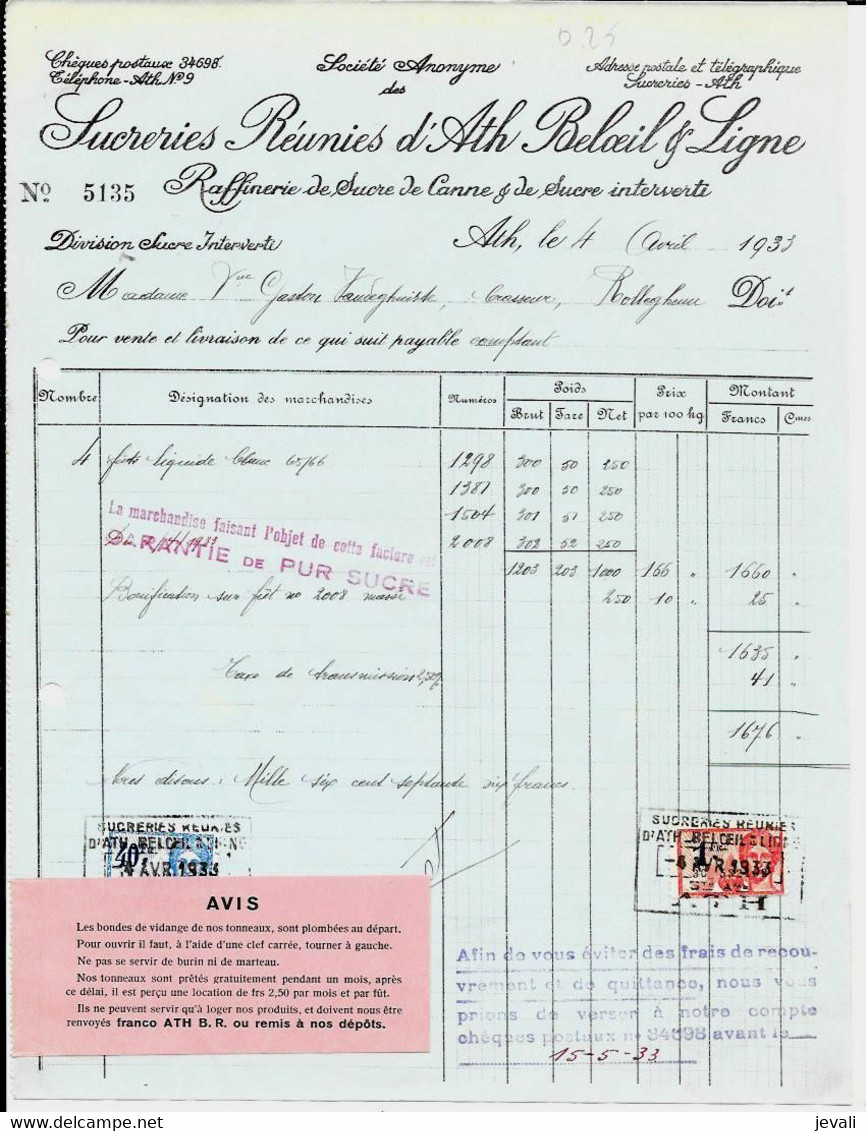 0.25
Chèques postaux 34698.
Téléphone - Ath Nº 9
Société Anonyme
des
Adresse postale et télégraphique
Sucreries - Ath
Sucreries Réunies d'Ath Belœil & Ligne
Nº 5135
Raffinerie de Sucre de Canne & de Sucre interverti
Division Sucre Interverti
Ath, le 4 Avril 1933
Madame Vve Gaston brasseur, Rolleghem Doit
Pour vente et livraison de ce qui suit payable comptant
Nombre Désignation des marchandises Numéros Poids Prix par 100 kg Montant
Brut Tare Net Francs Cmes
4 fûts liquide blanc 65/66 1298 300 50 250
1381 300 50 250
1504 301 51 250
2008 302 52 250
La marchandise faisant l'objet de cette facture est
GARANTIE DE PUR SUCRE
1203 203 1000 166 " 1660 "
Bonification sur fût no 2008 250 10 " 25 "
1635 "
Taxe de transmission 2,50% 41 "
1676 "
Nous disons : Mille six cent septante six francs.
SUCRERIES REUNIES
D'ATH, BELŒIL & LIGNE
4 AVR. 1933
40
SUCRERIES REUNIES
D'ATH, BELŒIL & LIGNE
-4 AVR. 1933
1
ATH
AVIS
Les bondes de vidange de nos tonneaux, sont plombées au départ.
Pour ouvrir il faut, à l'aide d'une clef carrée, tourner à gauche.
Ne pas se servir de burin ni de marteau.
Nos tonneaux sont prêtés gratuitement pendant un mois, après
ce délai, il est perçu une location de frs 2,50 par mois et par fût.
Ils ne peuvent servir qu'à loger nos produits, et doivent nous être
renvoyés franco ATH B. R. ou remis à nos dépôts.
Afin de vous éviter des frais de recou-
vrement et de quittance, nous vous
prions de verser à notre compte
chèques postaux nº 34698 avant le
15-5-33
jevali